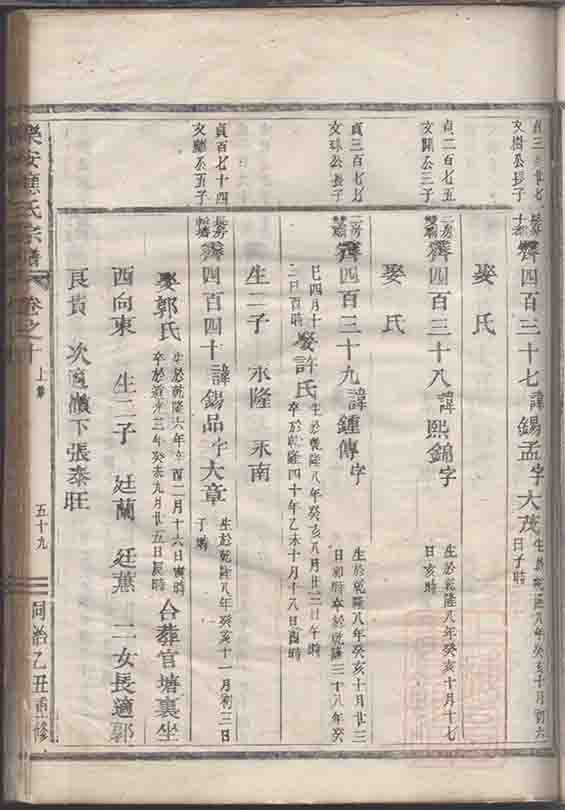 貞三百廿七
文樹公長子
齊四百三十七諱錫孟字大茂
生於乾隆八年癸亥十月初六
日子時
娶氏
貞二百七五
文開公三子
二房
齊四百三十八諱熙錦字
生於乾隆八年癸亥十月十七
日亥時
娶氏
貞三百七七
文球公長子
二房
齊四百三十九諱鍾傳字
生於乾隆八年癸亥十月廿三
日卯時卒於乾隆三十八年癸
巳四月十
二日酉時
娶許氏
生於乾隆八年癸亥八月廿三日午時
卒於乾隆四十年乙未十月十八日酉時
生二子 永隆 永南
貞百七十四
文公五子
長房
齊四百四十諱錫品字大章
生於乾隆八年癸亥十一月初三日
子時
娶郭氏
生於乾隆六年辛酉二月十六日寅時
卒於道光三年癸未九月廿五日辰時
合葬官塘裏坐
西向東 生二子 廷蘭 廷蕙 二女長適郭
良貴 次適嶺下張泰旺
樂安氏宗譜 卷之十 上 五十九 同治乙丑重修